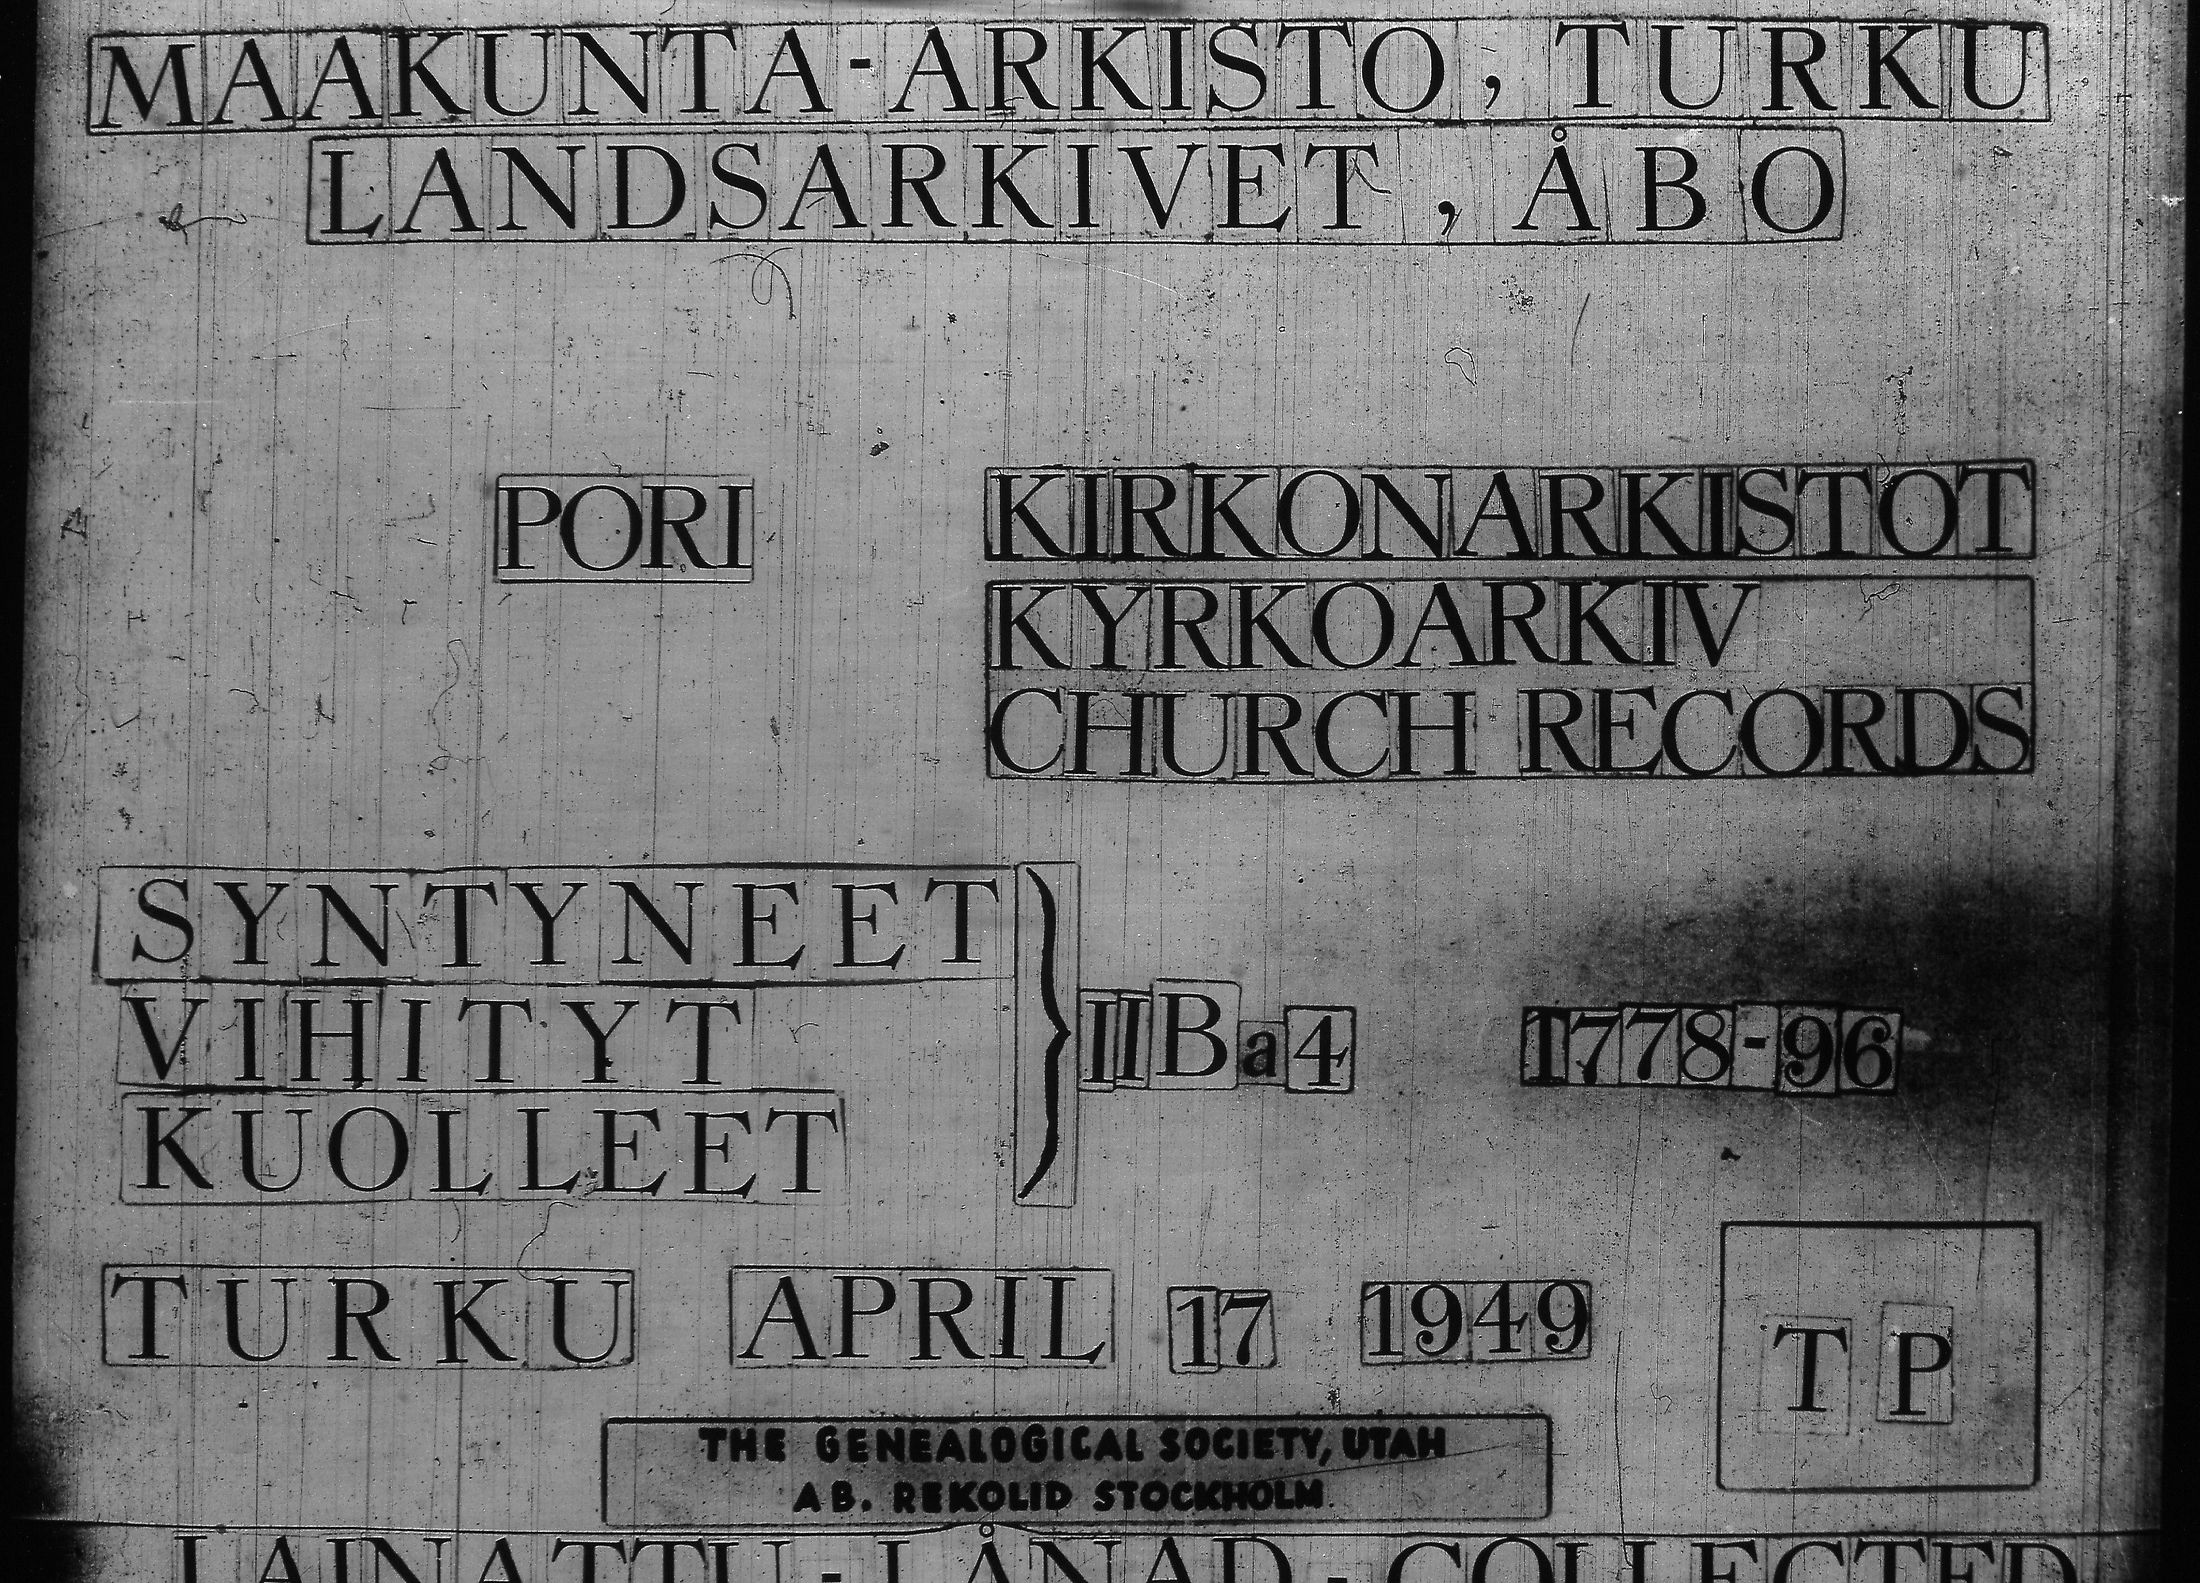 MAAKUNTA-ARKISTO, TURKU
LANDSARKIVET, ÅBO
PORI
KIRKONARKISTOT
KYRKOARKIV
CHURCH RECORDS
SYNTYNEET
VIHITYT
KUOLLEET
} IIBa4 1778-96
TURKU APRIL 17 1949
TP
THE GENEALOGICAL SOCIETY, UTAH
AB. REKOLID STOCKHOLM.
LAINATTU - LÅNAD - COLLECTED